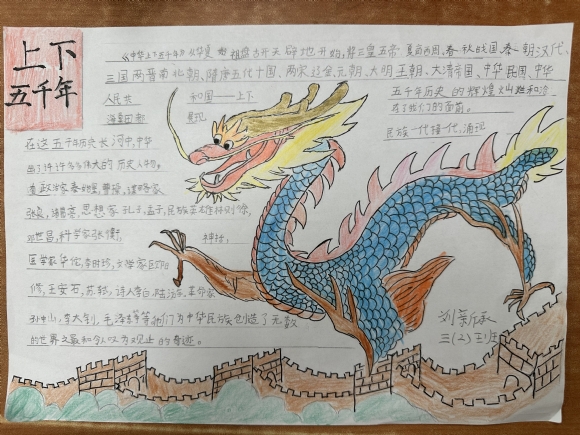 上下
五千年
《中华上下五千年》从华夏 祖盘古开天辟地开始,解三皇五帝 夏商西周、春秋战国、秦朝汉代、
三国两晋南北朝、隋唐五代十国、两宋辽金、元朝、大明王朝、大清帝国、中华民国、中华
人民共 和国——上下 五千年历史的辉煌灿
展现 在了我们的面前。
民族一代接一代,涌现
在这五千年历史长河中,中华
出了许许多多伟大的历史人物。
政治家秦始皇、曹操,谋略家
张良、诸葛亮,思想家孔子、孟子,民族英雄林则徐,
邓世昌,科学家张衡,
医学家华佗、李时珍,文学家欧阳
修,王安石,苏轼,诗人李白,陆游,革命家
孙中山,李大钊,毛泽东等等他们为中华民族创造了无数
的世界之最和令人叹为观止的奇迹。
三(2)班